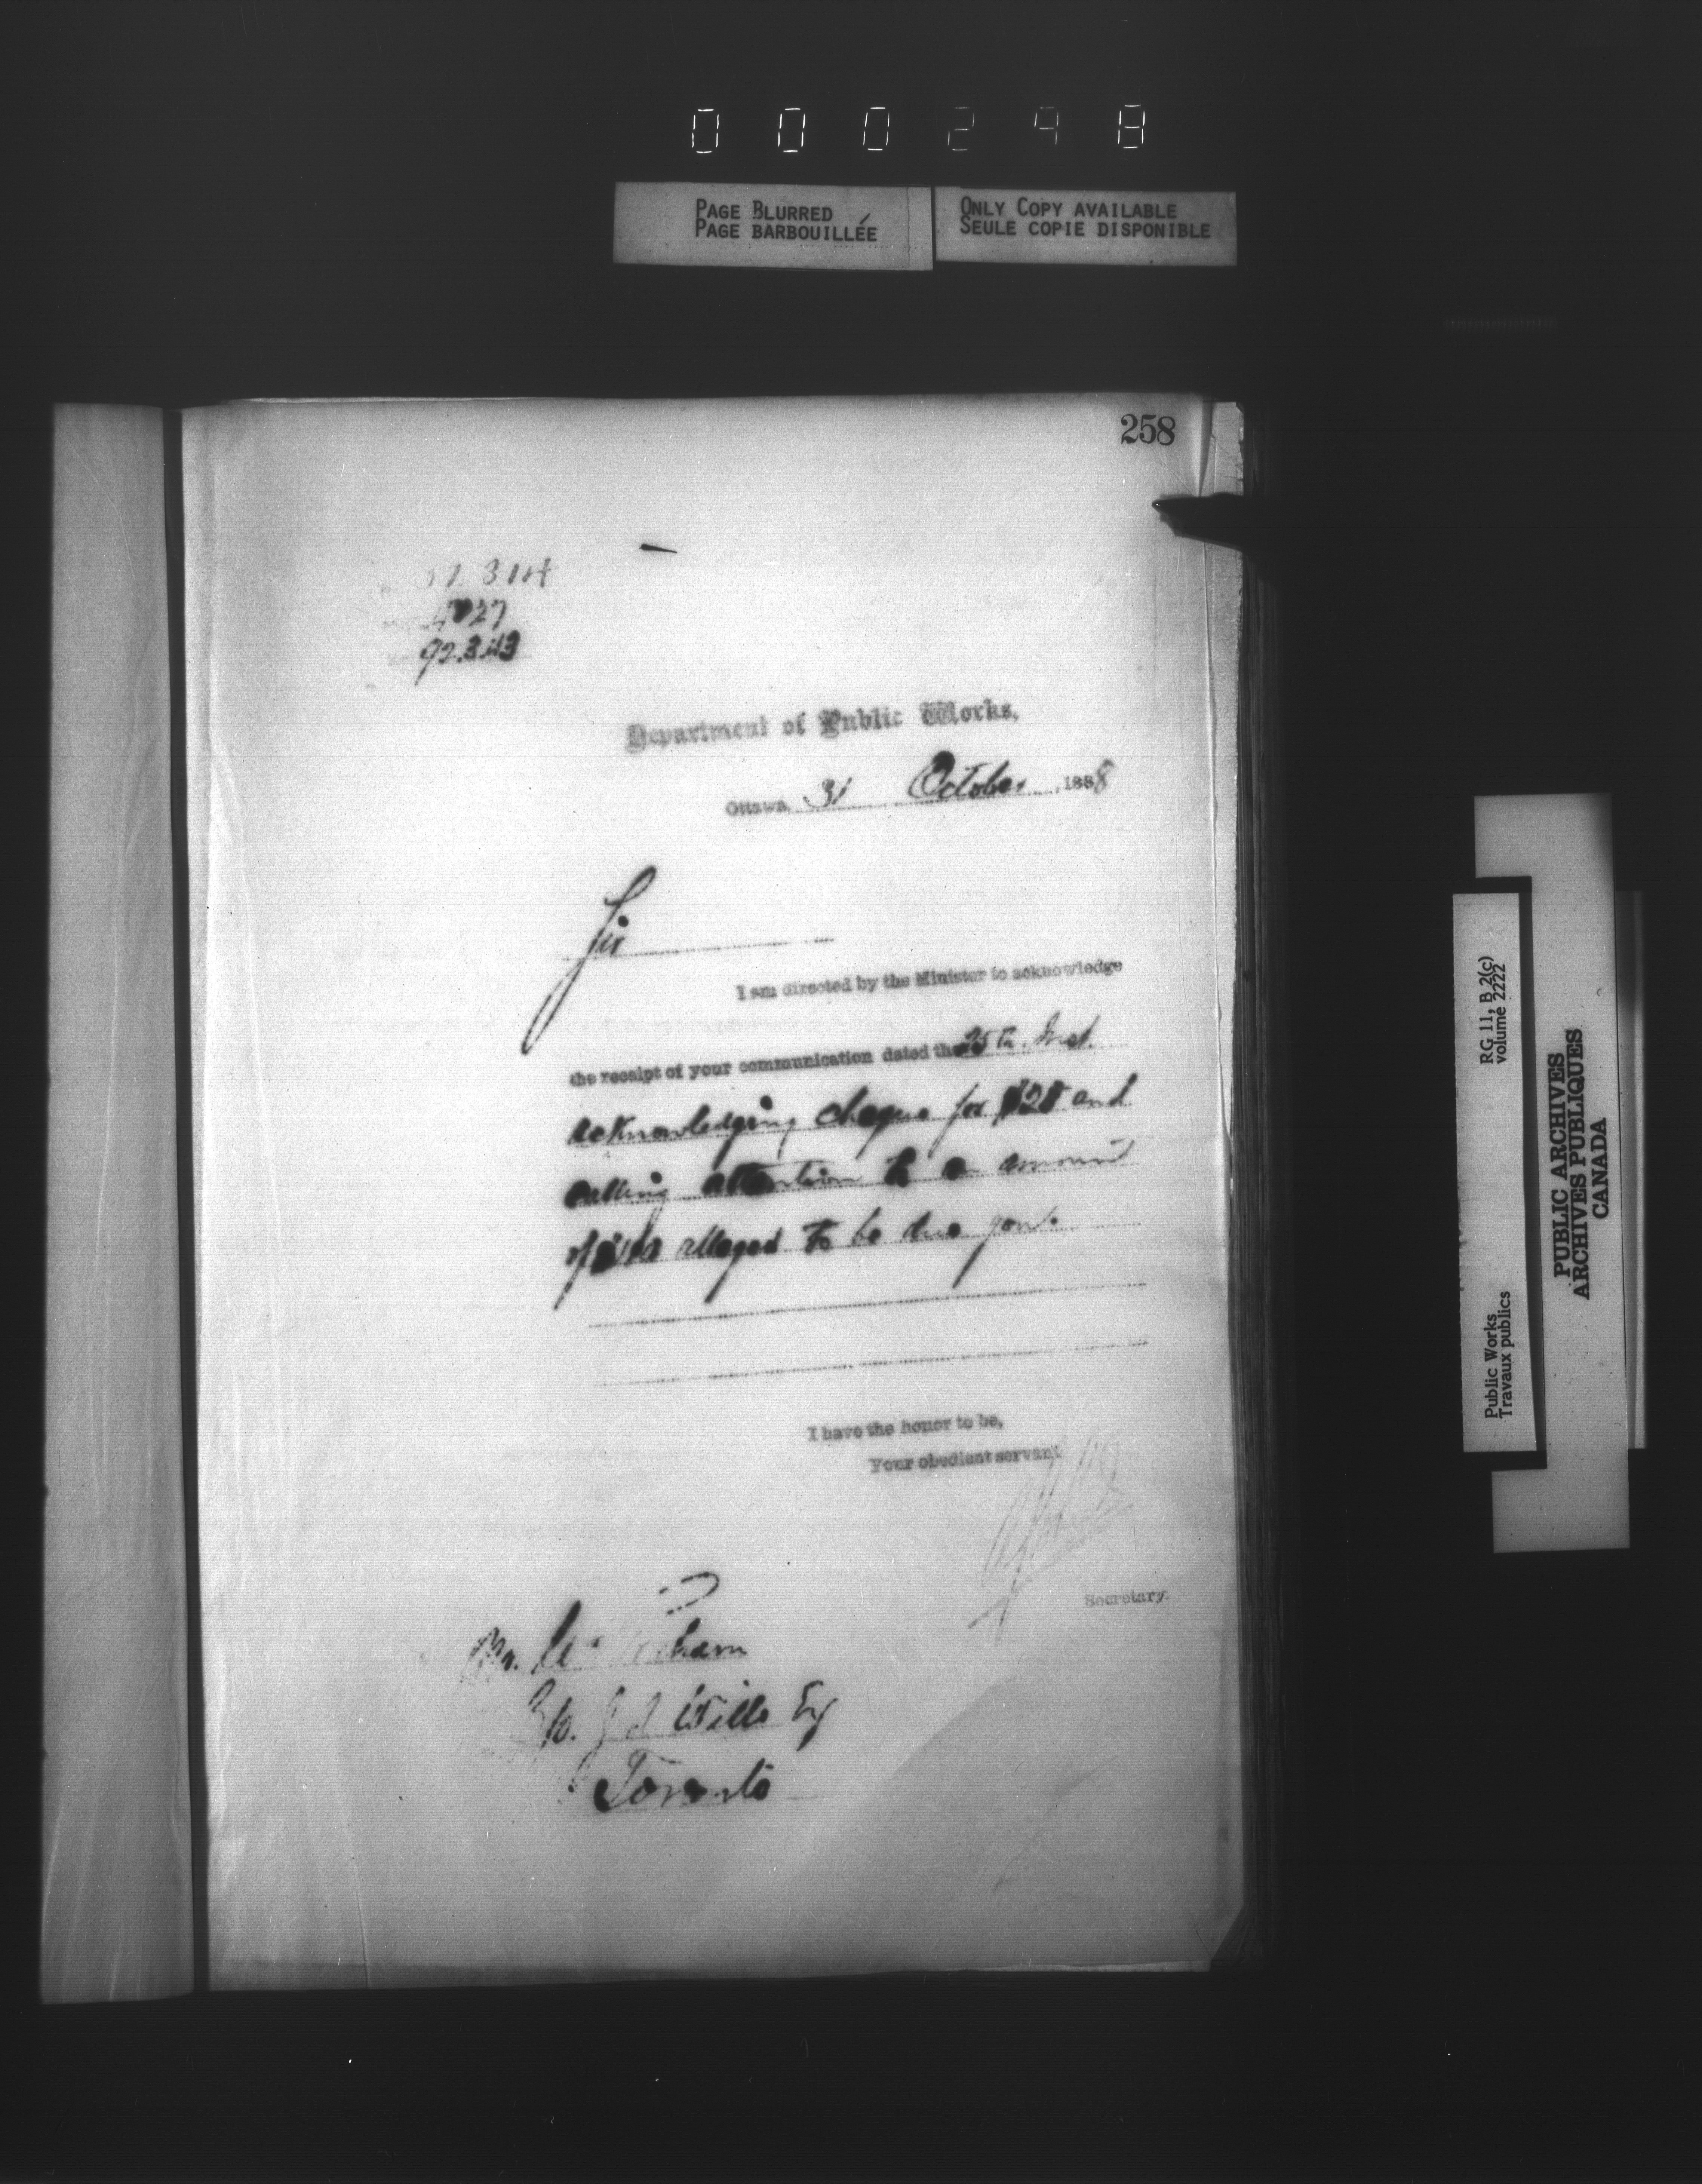 000298
PAGE BLURRED
PAGE BARBOUILLÉE
ONLY COPY AVAILABLE
SEULE COPIE DISPONIBLE
258
Department of Public Works,
Ottawa, 31 October, 1888
Sir
I am directed by the Minister to acknowledge
the receipt of your communication dated the 25th. Inst.
acknowledging cheque for and
calling attention to a amount
of alleged to be due you.
I have the honor to be,
Your obedient servant
Secretary.
Mr.
Wills Esq
Toronto
RG 11, B 2(c)
volume 2222
Public Works
Travaux publics
PUBLIC ARCHIVES
ARCHIVES PUBLIQUES
CANADA